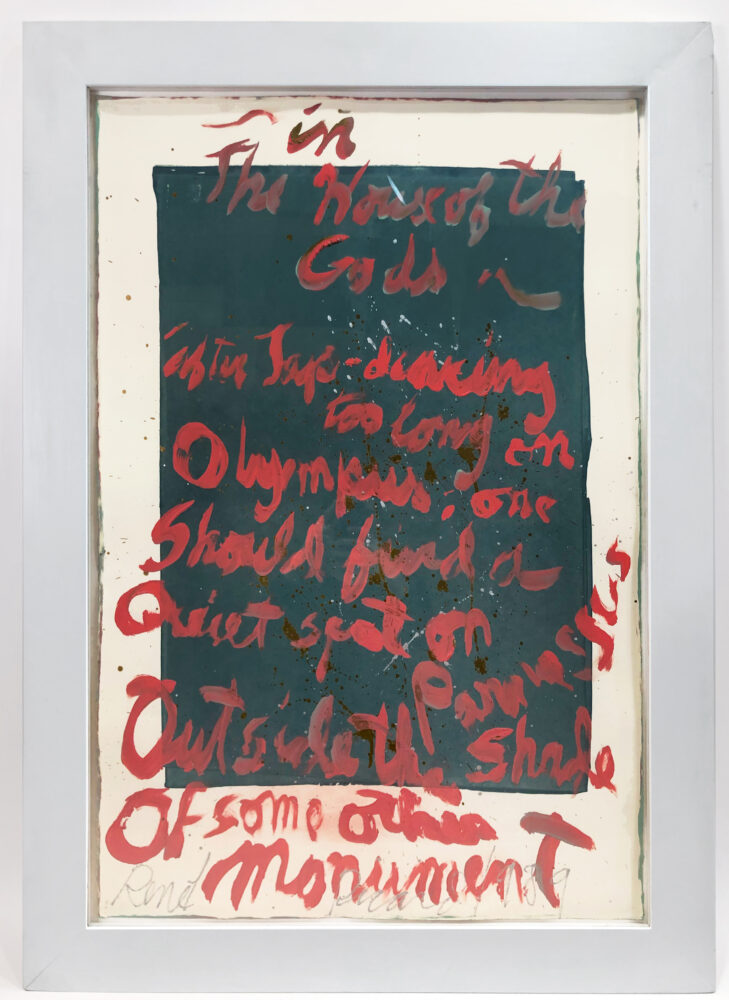 ~ in
The House of the
Gods ~
after Tap-dancing
too long on
Olympus. one
Should find a
Quiet spot on
Parnassus
Outside the Shade
Of some other
monument
René 1989